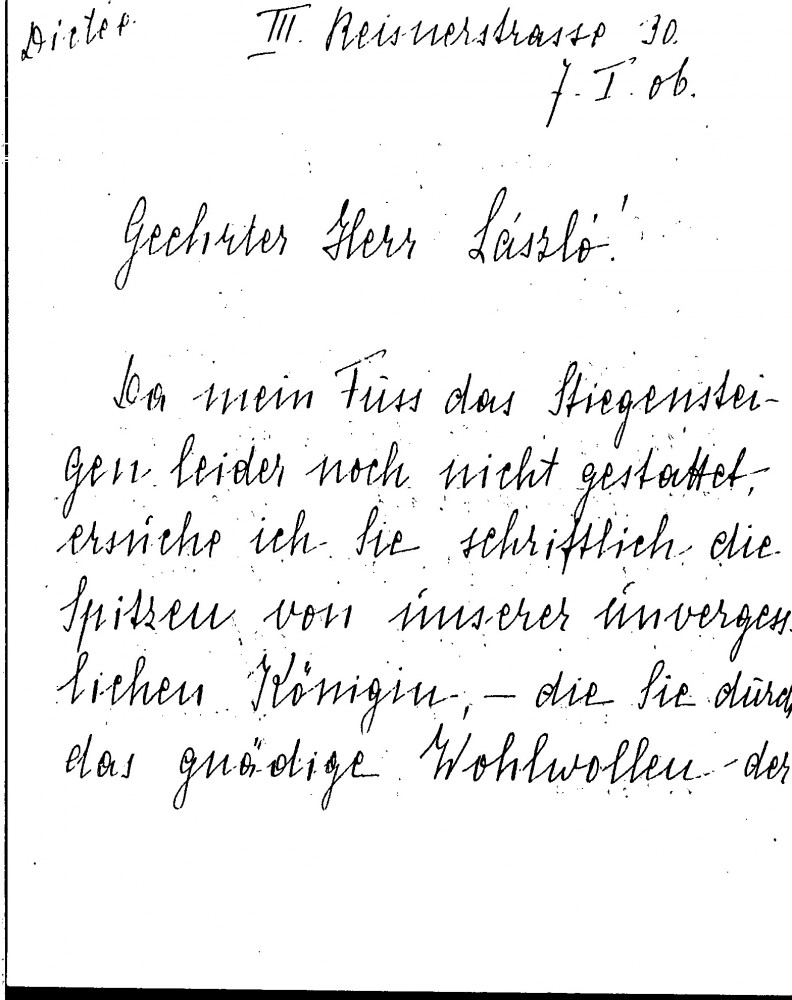 Dictée. III. Reisnerstrasse 30.
7. I. 06.
Geehrter Herr László!
Da mein Fuss das Stiegenstei-
gen leider noch nicht gestattet,
ersuche ich Sie schriftlich die
Spitzen von unserer unvergess
lichen Königin, – die Sie durch
das gnädige Wohlwollen der